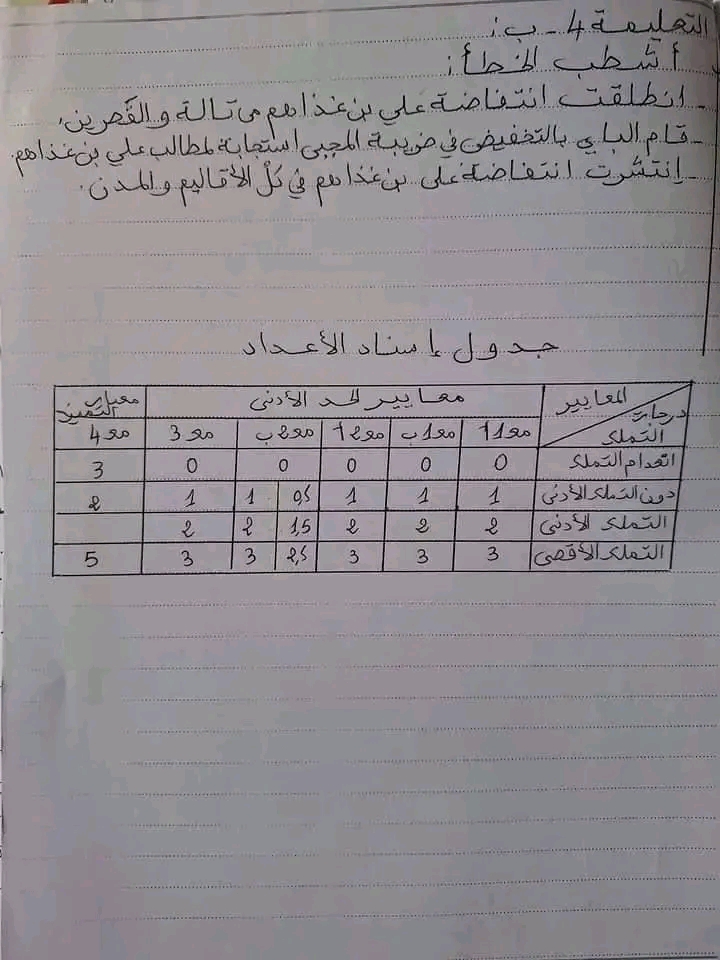 التعليمة 4 - ب:
أشطب الخطأ:
- انطلقت انتفاضة علي بن غذاهم من تالة والقصرين.
- قام الباي بالتخفيض في ضريبة المجبى استجابة لمطالب علي بن غذاهم.
- إنتشرت انتفاضة علي بن غذاهم في كل الأقاليم والمدن.
جدول إسناد الأعداد
المعايير درجات التملك | معايير الحد الأدنى | معيار التميز
مع1أ | مع1ب | مع2أ | مع2ب | مع3 | مع4
انعدام التملك | 0 | 0 | 0 | 0 | 0 | 3
دون التملك الأدنى | 1 | 1 | 1 | 0,5 | 1 | 1 | 2
التملك الأدنى | 2 | 2 | 2 | 1,5 | 2 | 2
التملك الأقصى | 3 | 3 | 3 | 2,5 | 3 | 3 | 5